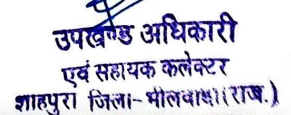 उपखण्ड अधिकारी
एवं सहायक कलेक्टर
शाहपुरा जिला-भीलवाड़ा(राज.)